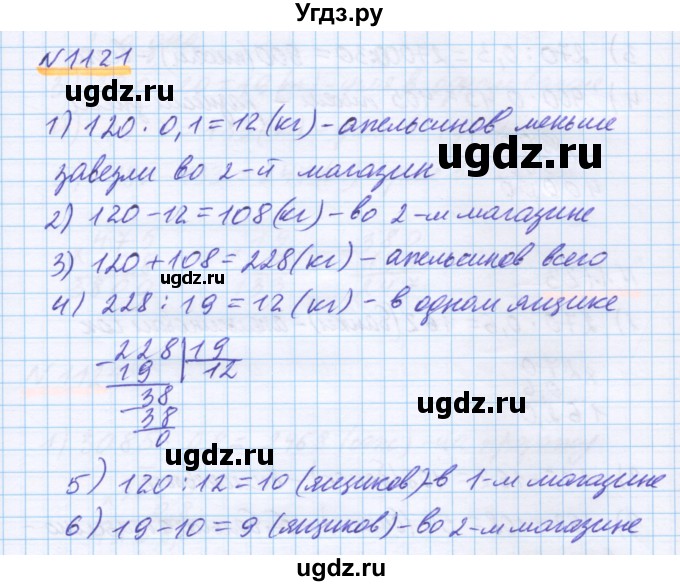 Угдз.ру
№1121
ugdz.ru
1) 120 · 0,1 = 12 (кг) - апельсинов меньше
завезли во 2-й магазин
ugdz.ru
2) 120 - 12 = 108 (кг) - во 2-м магазине
3) 120 + 108 = 228 (кг) - апельсинов всего
ugdz.ru
4) 228 : 19 = 12 (кг) - в одном ящике
228 | 19
- 19 12
38
ugdz.ru
- 38
0
ugdz.ru
5) 120 : 12 = 10 (ящиков) - в 1-м магазине
6) 19 - 10 = 9 (ящиков) - во 2-м магазине
ugdz.ru